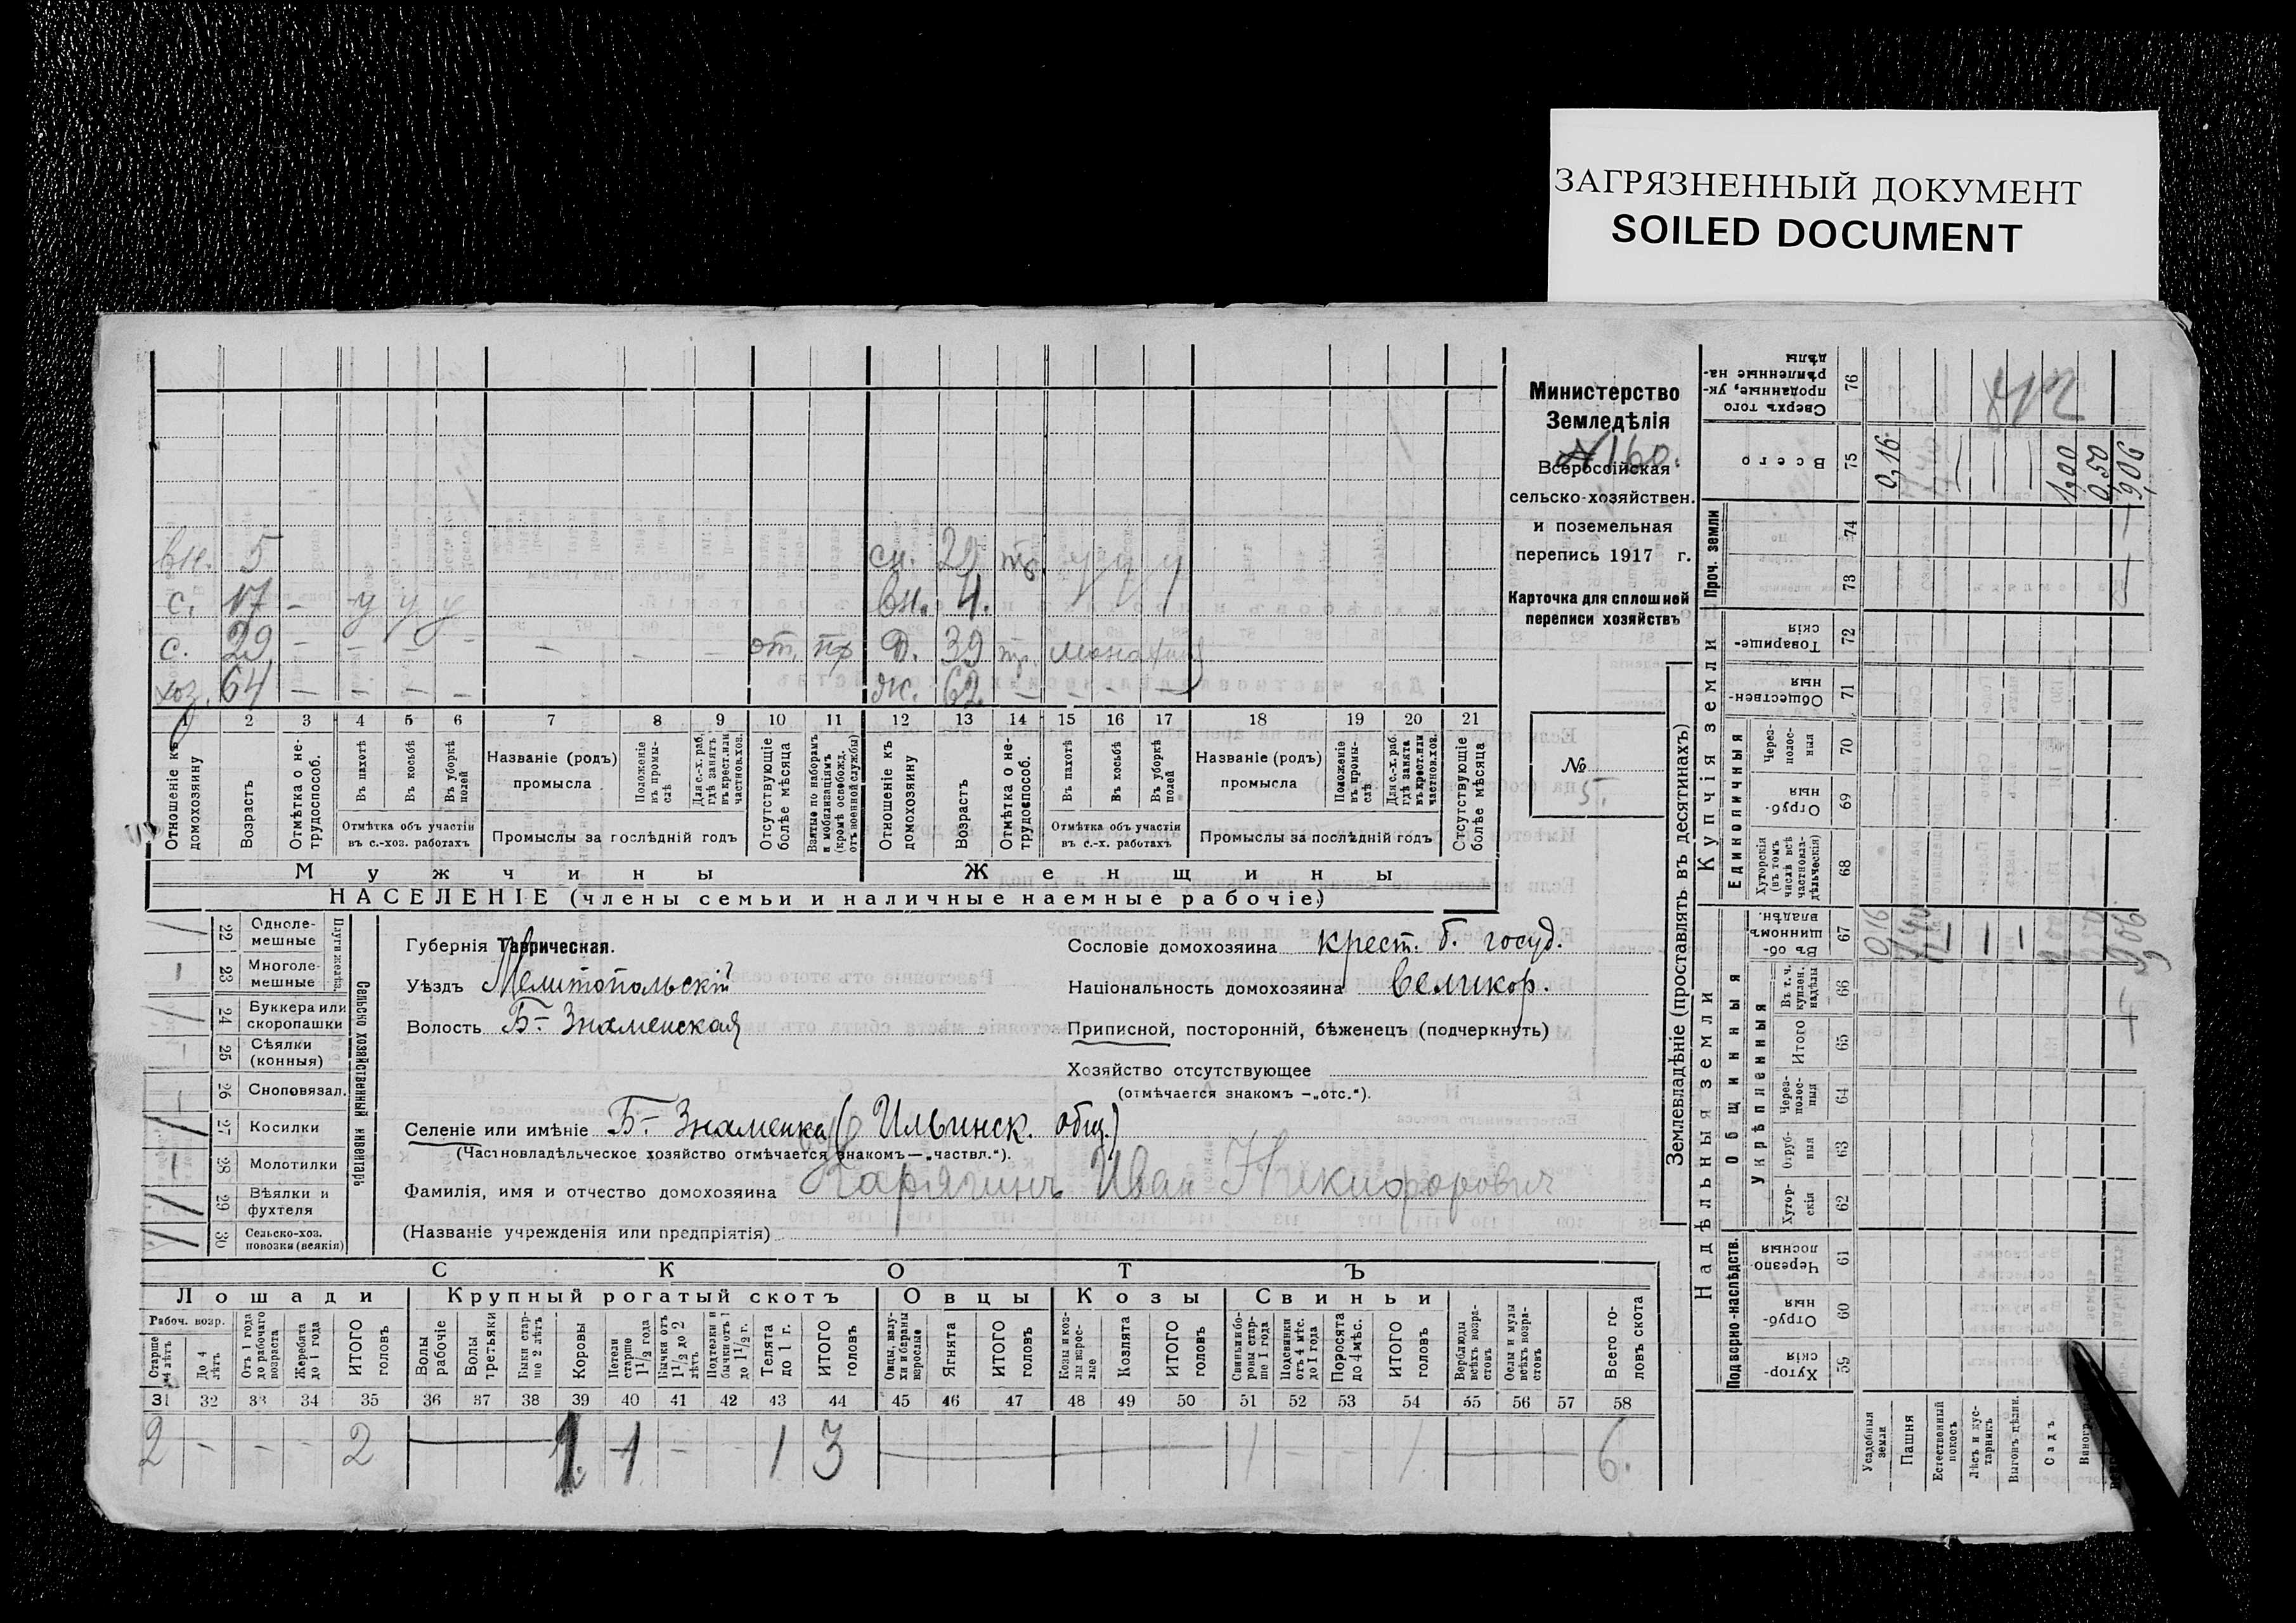 ЗАГРЯЗНЕННЫЙ ДОКУМЕНТ
SOILED DOCUMENT
Министерство
Земледѣлія
№ 160.
Всероссійская
сельско-хозяйствен.
и поземельная
перепись 1917 г.
Карточка для сплошной
переписи хозяйствъ
№
5.
вн. 5 сн. 29 тр. у у у
с. 17 – у у у вн. 4.
с. 29 – – – – – – – от. Д. 39 монахиня
хоз. 64 – – – – ж. 62 – – – –
1 2 3 4 5 6 7 8 9 10 11 12 13 14 15 16 17 18 19 20 21
Отношеніе къ домохозяину
Возрастъ
Отмѣтка о нетрудоспособ.
Въ пахотѣ
Въ косьбѣ
Въ уборкѣ полей
Отмѣтка объ участіи въ с.-хоз. работахъ
Названіе (родъ) промысла
Положеніе въ промыслѣ
Для с.-х. раб. гдѣ занятъ въ крест. или частнов. хоз.
Промыслы за послѣдній годъ
Отсутствующіе болѣе мѣсяца
Взятые по наборамъ и мобилизаціямъ (кромѣ освобожд. отъ военной службы)
Отношеніе къ домохозяину
Возрастъ
Отмѣтка о нетрудоспособ.
Въ пахотѣ
Въ косьбѣ
Въ уборкѣ полей
Отмѣтка объ участіи въ с.-х. работахъ
Названіе (родъ) промысла
Положеніе въ промыслѣ
Для с.-х. раб. гдѣ занята въ крест. или частнов. хоз.
Промыслы за послѣдній годъ
Отсутствующіе болѣе мѣсяца
Мужчины Женщины
НАСЕЛЕНІЕ (члены семьи и наличные наемные рабочіе)
Сельско хозяйственный инвентарь
Плуги желѣз.
22 Однолемешные
23 Многолемешные
24 Буккера или скоропашки
25 Сѣялки (конныя)
26 Сноповязал.
27 Косилки
28 Молотилки
29 Вѣялки и фухтеля
30 Сельско-хоз. повозки (всякія)
Губернія Таврическая.
Уѣздъ Мелитопольскій
Волость Б.- Знаменская
Сословіе домохозяина крест. б. госуд.
Національность домохозяина великор.
Приписной, посторонній, бѣженецъ (подчеркнуть)
Хозяйство отсутствующее
(отмѣчается знакомъ –„отс.“).
Селеніе или имѣніе Б.- Знаменка (Ильинск. общ.)
(Частновладѣльческое хозяйство отмѣчается знакомъ—„частвл.“).
Фамилія, имя и отчество домохозяина Карягинъ Иван Никифорович
(Названіе учрежденія или предпріятія)
СКОТЪ
Лошади Крупный рогатый скотъ Овцы Козы Свиньи
Рабоч. возр.
Старше 4 лѣтъ
До 4 лѣтъ
Отъ 1 года до рабочаго возраста
Жеребята до 1 года
ИТОГО головъ
Волы рабочіе
Волы третьяки
Быки старше 2 лѣтъ
Коровы
Нетели старше 1 1/2 года
Бычки отъ 1 1/2 до 2 лѣтъ
Подтелки и бычки отъ 1 до 1 1/2 г.
Телята до 1 г.
ИТОГО головъ
Овцы, валухи и бараны взрослые
Ягнята
ИТОГО головъ
Козы и козлы взрослые
Козлята
ИТОГО головъ
Свиньи и боровы старше 1 года
Подсвинки отъ 4 мѣс. до 1 года
Поросята до 4 мѣс.
ИТОГО головъ
Верблюды всѣхъ возрастовъ
Ослы и мулы всѣхъ возрастовъ
Всего головъ скота
31 32 33 34 35 36 37 38 39 40 41 42 43 44 45 46 47 48 49 50 51 52 53 54 55 56 57 58
2 – – – 2 — 1 1 – – 1 3 — — 1 – – 1 — 6.
Землевладѣніе (проставлять въ десятинахъ)
Надѣльныя земли
Купчія земли
Проч. земли
Подворно-наслѣдств.
Общинныя
Укрѣпленныя
Единоличныя
59 Хуторскія
60 Отрубныя
61 Черезполосныя
62 Хуторскія
63 Отрубныя
64 Черезполосныя
65 Итого
66 Въ т. ч. куплен. надѣлы
67 Въ общинномъ владѣн.
68 Хуторскія (въ томъ числѣ всѣ частновладѣльческія)
69 Отрубныя
70 Черезполосныя
71 Общественныя
72 Товарищескія
73
74
75 Всего
76 Сверхъ того проданные, укрѣпленные надѣлы
Усадебныя земли
Пашня
Естественный покосъ
Лѣсъ и кустарникъ
Выгонъ цѣлин.
Садъ
0,16
1,00
0,50
9,06
0,16
9,06